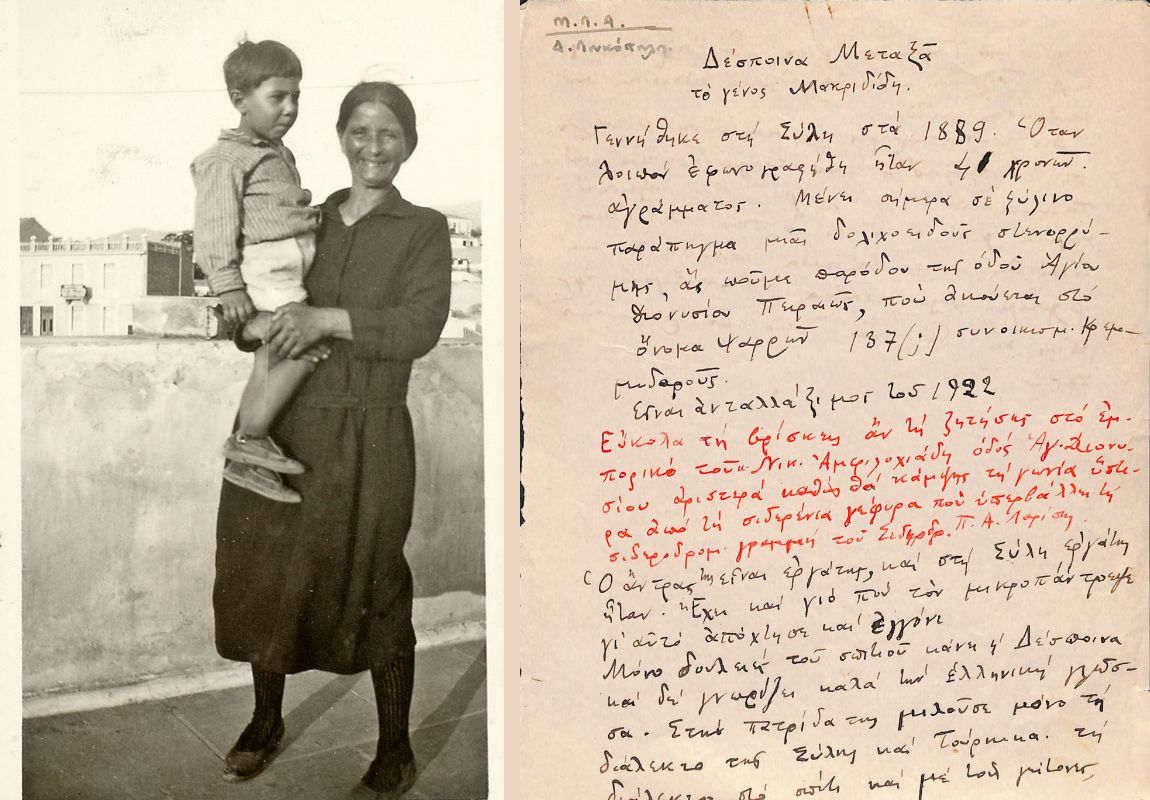 Μ.Λ.Α.
Δ. Λουκόπουλ.
Δέσποινα Μεταξᾶ
τὸ γένος Μακριδίδη.
Γεννήθηκε στὴ Σύλη στὰ 1889. Ὅταν
λοιπὸν ἐφωνογραφήθη ἦταν 41 χρονῶν.
ἀγράμματος. Μένει σήμερα σὲ ξύλινο
παράπηγμα μιᾶς δολιχοειδοῦς στενορρύ-
μης, ἂς ποῦμε παρόδου τῆς ὁδοῦ Ἁγίου
Διονυσίου Πειραιῶς, ποὺ ἀκούεται στὸ
ὄνομα Ψαρρῶν 137(;) συνοικισμ. Κρεμ-
μυδαροῦς.
Εἶναι ἀνταλλάξιμος τοῦ 1922
Εὔκολα τὴ βρίσκεις ἂν τὴ ζητήσης στὸ ἐμ-
πορικὸ τοῦ κ. Νικ. Ἀμφιλοχιάδη ὁδὸς Ἁγ. Διονυ-
σίου ἀριστερὰ καθὼς θὰ κάμψης τὴ γωνία ὕστε-
ρα ἀπὸ τὴ σιδερένια γέφυρα ποὺ ὑπερβάλλει τὴ
σιδεροδρομ. γραμμὴ τοῦ Σιδηρδρ. Π. Α. Λαρίσης.
Ὁ ἄντρας της εἶναι ἐργάτης, καὶ στὴ Σύλη ἐργάτης
ἦταν. Ἔχει καὶ γιὸ ποὺ τὸν μικροπάντρεψε
γι' αὐτὸ ἀπόχτησε καὶ ἐγγόνι
Μόνο δουλειὲς τοῦ σπιτιοῦ κάνει ἡ Δέσποινα
καὶ δὲ γνωρίζει καλὰ τὴν ἑλληνικὴ γλῶσ-
σα. Στὴν πατρίδα της μιλοῦσε μόνο τὴ
διάλεκτο τῆς Σύλης καὶ Τούρκικα. τὴ
διάλεκτο στὸ σπίτι καὶ μὲ τοὺς γείτονες